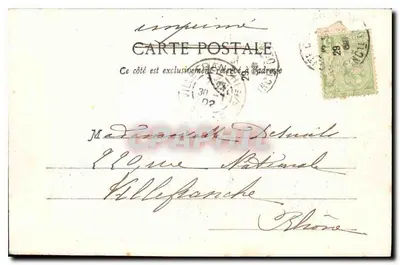 imprimé
CARTE POSTALE
Ce côté est exclusivement réservé à l'adresse
30
02
29
Mademoiselle
229 rue Nationale
Villefranche
Rhône